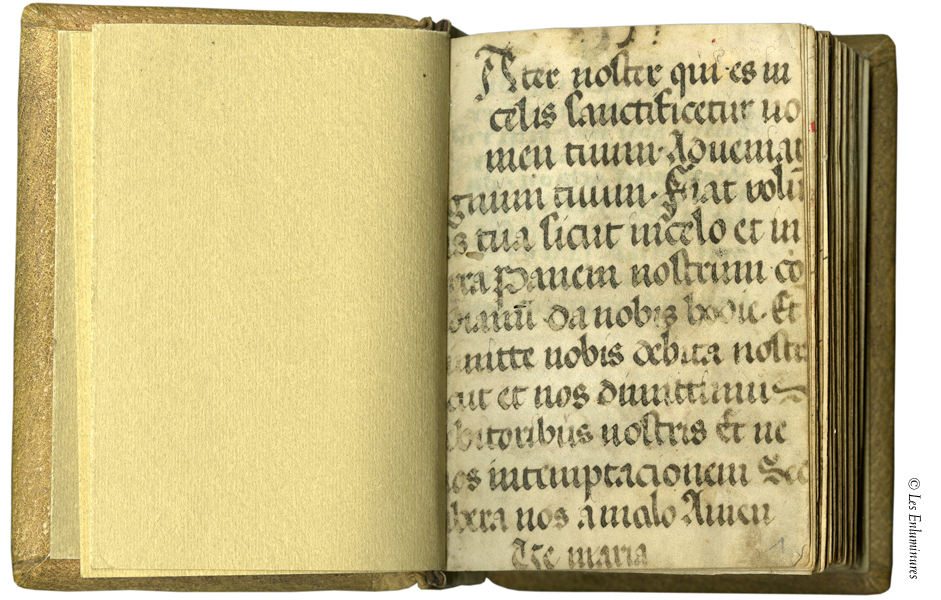 Ater noster qui es in
celis sanctificetur no
men tuum · Adveniat
gnum tuum · Fiat volū
is tua sicut in celo et in
rra Panem nostrum co
dianū · da nobis hodie · Et
mitte nobis debita nostr
cut et nos dimittimus
ebitoribus nostris Et ne
nos in temptacionem Sed
ibera nos a malo Amen
Ave maria
1
© Les Enluminures